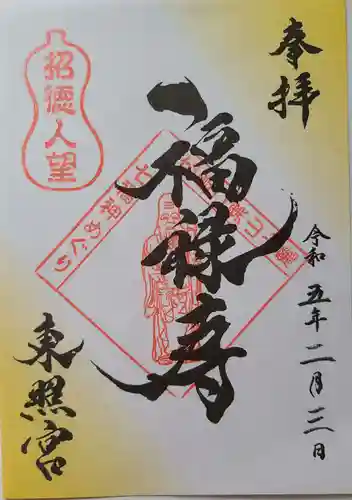 奉拝
招徳人望
福禄寿
七福神めぐり
令和五年二月三日
東照宮